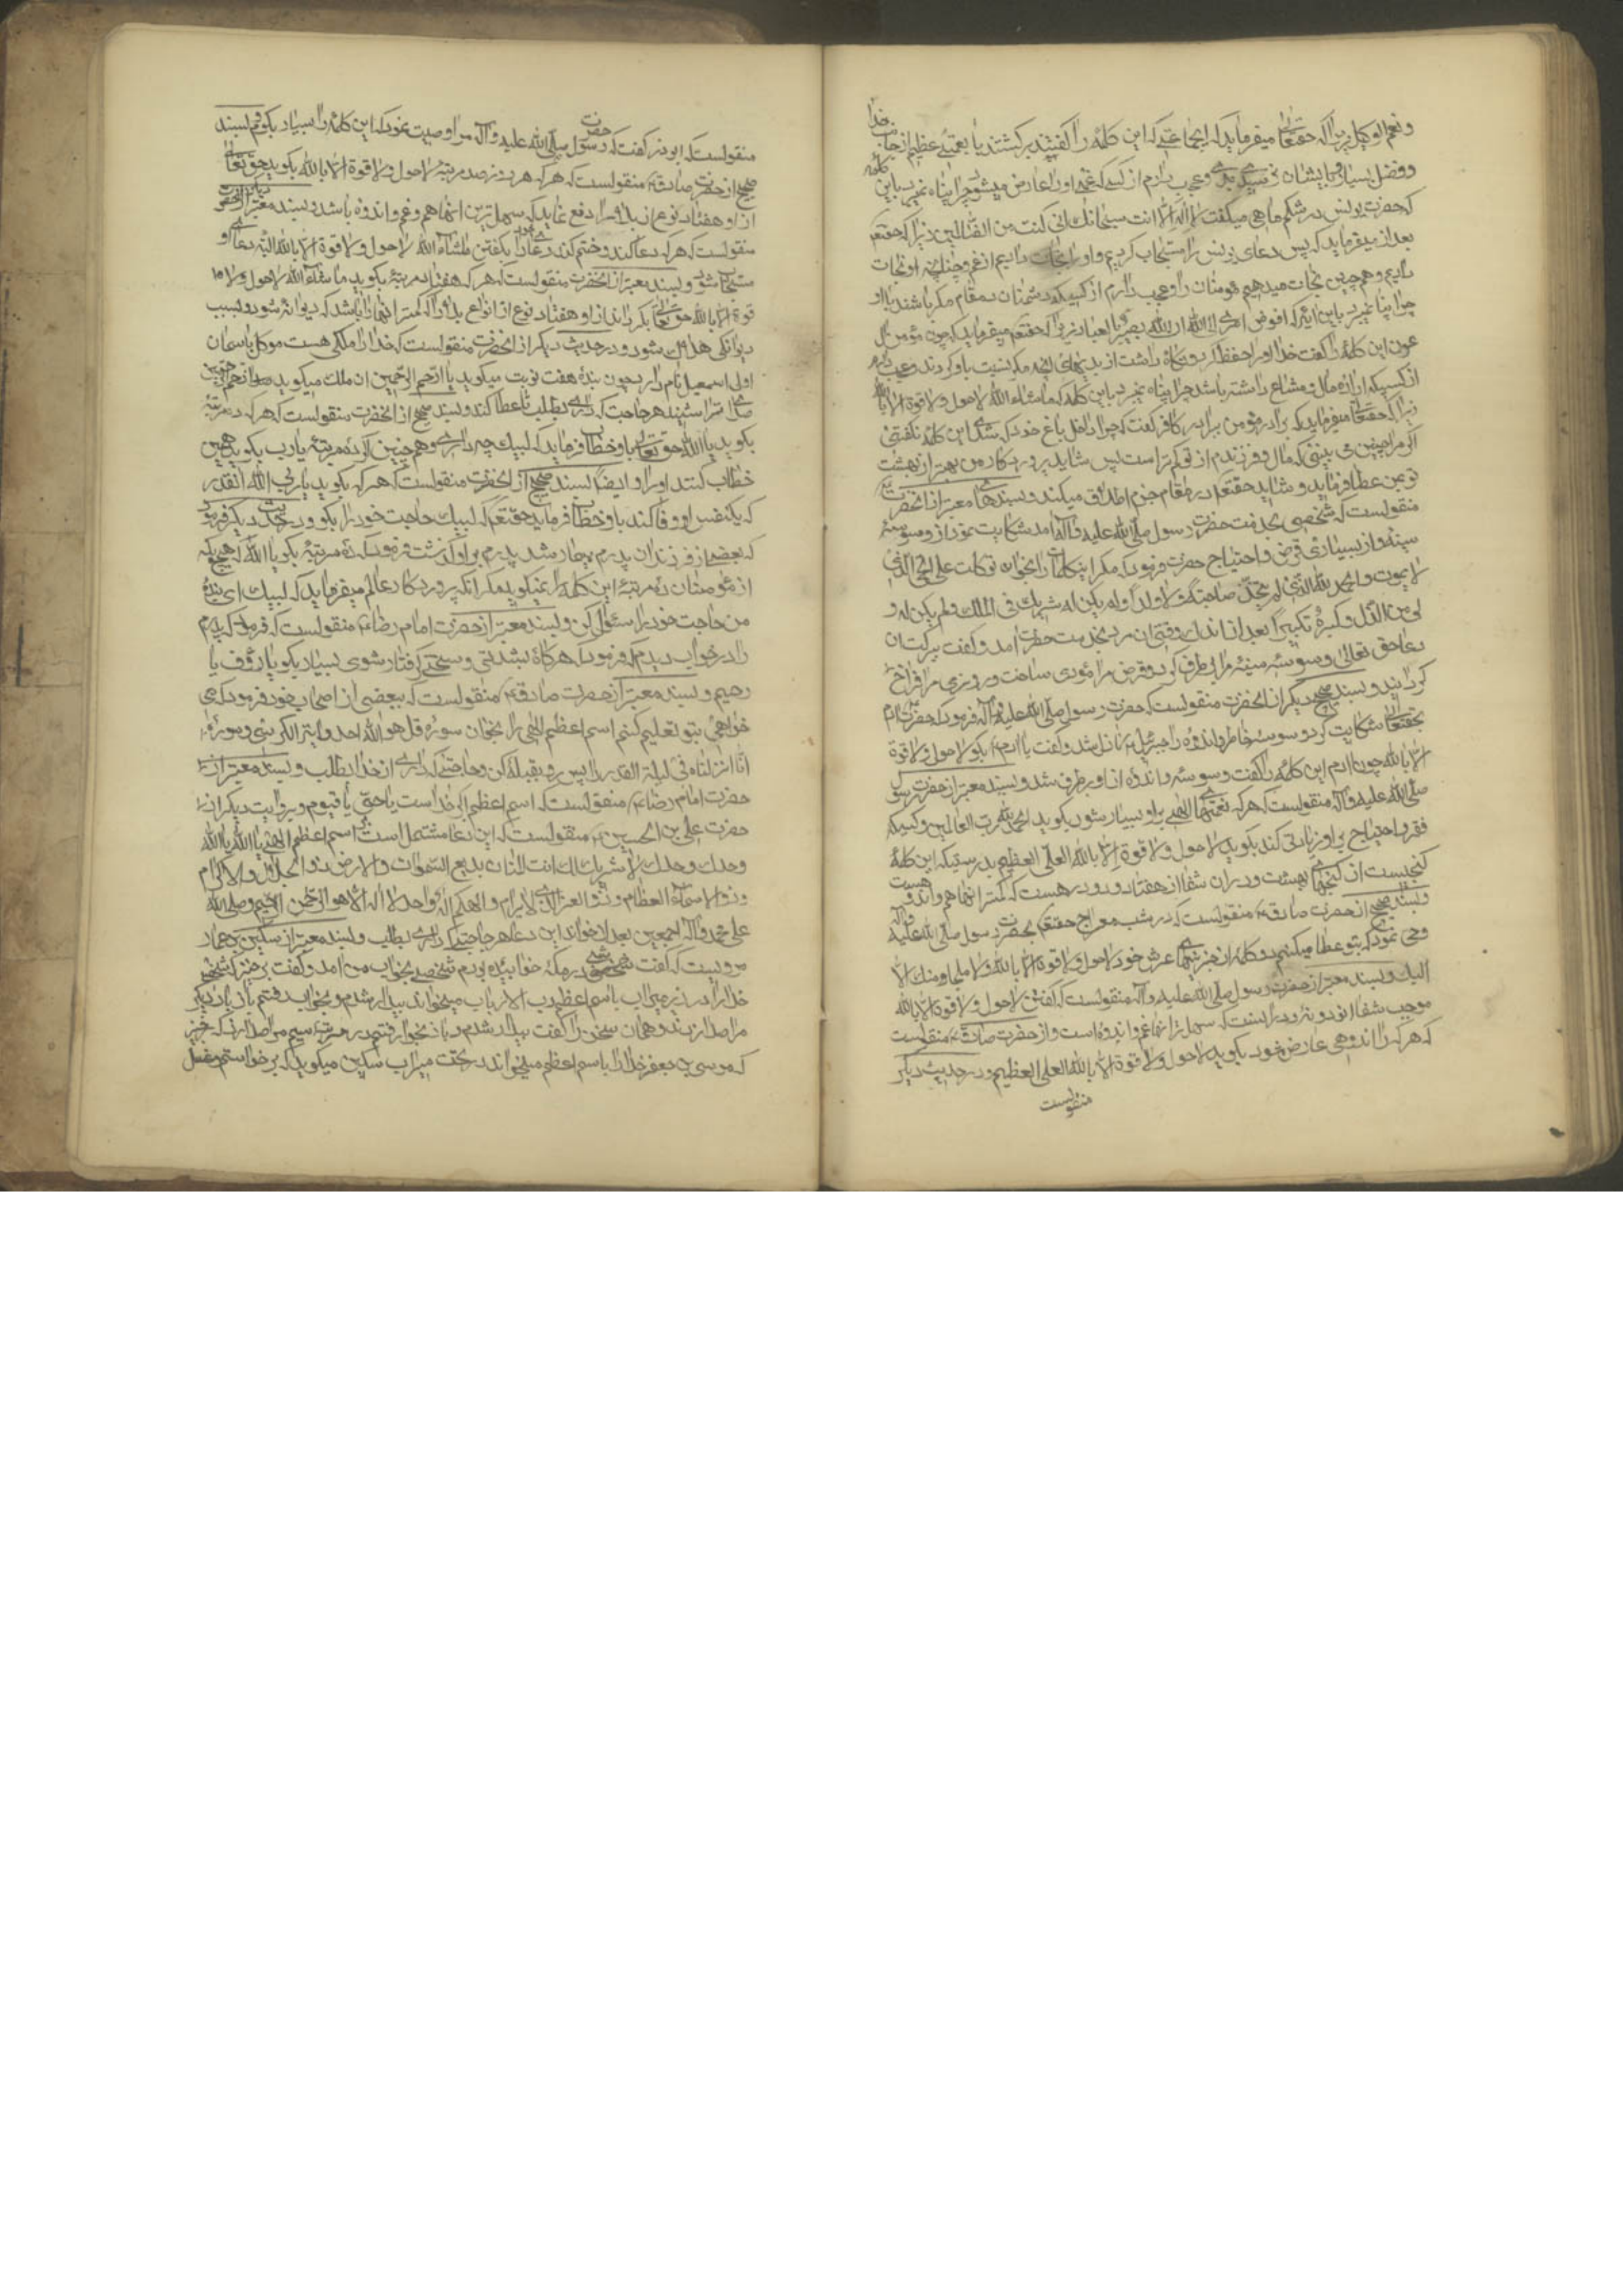 ونعم الوکیل زیرا که حقتعالی میفرماید که جماعتی که این کلمه را گفتند برگشتند با نعمتی عظیم از جانب خدا
وفضل بسیار وبایشان نرسید بدی وعجب دارم از کسی که غمی او را عارض میشود چرا پناه نمیبرد باین کلمه
که حضرت یونس در شکم ماهی میگفت لا اله الا انت سبحانك انی کنت من الظالمین زیرا که حقتعم
بعد از میفرماید که پس دعای یونس را مستجاب کردیم واو را نجات دادیم از غم وچنانچه او نجات
دادیم وهمچنین نجات میدهیم مومنان را وعجب دارم از کسیکه دشمنان در مقام مکر باشند با او
چرا پناه نمیبرد باین آیه که افوض امری الی الله ان الله بصیر بالعباد زیرا که حقتعم میفرماید که چون مؤمن آل
فرعون این کلمه را گفت خدا او را حفظ کرد ونگاه داشت از بدیهای آنچه مکر نسبت باو کردند وعجب دارم
از کسیکه اراده مال ومتاع داشته باشد چرا پناه نمیبرد باین کلمه که ماشاء الله لا حول ولا قوة الا بالله
زیرا که حقتعالی میفرماید که برادر مؤمن برادر کافر گفت که چرا داخل باغ خود که شدی این کلمه نگفتی
اگر مرا چنین می بینی که مال وفرزندم از تو کمتر است پس شاید پروردگار من بهتر از بهشت
تو بمن عطا فرماید وشاید حقتعم در مقام جزم اطلاق میکنند وبسندهای معتبر از آنحضرت
منقولست که شخصی بخدمت حضرت رسول صلی الله علیه وآله آمد شکایت نمود از وسوسه
سینه واز بسیاری قرض واحتیاج حضرت فرمود که مکرر اینکلمات را بخوان توکلت علی الحی الذی
لا یموت والحمد لله الذی لم یتخذ صاحبة ولا ولدا ولم یکن له شریك فی الملك ولم یکن له و
لی من الذل وکبره تکبیرا بعد از اندك وقتی آن مرد بخدمت حضرت آمد وگفت ببرکت آن
دعا حق تعالی وسوسه سینه مرا برطرف کرد وقرض مرا مؤدی ساخت وروزی مرا فراخ
گردانید وبسند صحیح دیگر از آنحضرت منقولست که حضرت رسول صلی الله علیه وآله فرمود که حضرت آدم
بحقتعالی شکایت کرد وسوسه خاطر واندوه را جبرئیل نازل شد وگفت یا آدم بگو لا حول ولا قوة
الا بالله چون آدم این کلمه را گفت وسوسه واندوه از او برطرف شد وبسند معتبر از حضرت رسول
صلی الله علیه وآله منقولست که هر که نعمتهای الهی بر او بسیار شود بگوید الحمد لله رب العالمین وکسیکه
فقر واحتیاج بر او زیادتی کند بگوید لا حول ولا قوة الا بالله العلی العظیم بدرستیکه این کلمه
گنجیست از گنجهای بهشت ودر آن شفا از هفتاد ودو درد هست که کمتر آنها هم واندوه هست
وبسند صحیح از حضرت صادق ع منقولست که در شب معراج حقتعم بحضرت رسول صلی الله علیه وآله
وحی نمود که بتو عطا میکنم دو کلمه از خزینهای عرش خود لا حول ولا قوة الا بالله ولا ملجأ ومنك الا
الیك وبسند معتبر از حضرت رسول صلی الله علیه وآله منقولست که گفتن لا حول ولا قوة الا بالله
موجب شفا از نود ونه درد است که سهلتر آنها غم واندوه است واز حضرت صادق ع منقولست
که هر که را اندوهی عارض شود بگوید لا حول ولا قوة الا بالله العلی العظیم ودر حدیث دیگر
منقولست
منقولست که ابوذر گفت که حضرت رسول صلی الله علیه وآله مرا وصیت نمود که این کلمه را بسیار بگویم وبسند
صحیح از حضرت صادق ع منقولست که هر که هر روز صد مرتبه لا حول ولا قوة الا بالله بگوید حق تعالی
از او هفتاد نوع از بلا را دفع نماید که سهل ترین آنها هم وغم واندوه باشد وبسند معتبر دیگر از آنحضرت
منقولست که هر که دعا کند وختم کند دعای خود را بگفتن ماشاء الله لا حول ولا قوة الا بالله البته دعای او
مستجاب شود وبسند معتبر از آنحضرت منقولست که هر که هفتاد مرتبه بگوید ماشاء الله لا حول ولا
قوة الا بالله حق تعالی بگرداند از او هفتاد نوع از انواع بلا را که کمتر آنها را باشد که دیوانه شود وبسبب
دیوانگی هلاك شود ودر حدیث دیگر از آنحضرت منقولست که خدا را ملکی هست موکل باسمان
اول اسمعیل نام دارد چون بنده هفت نوبت میگوید یا ارحم الراحمین آن ملك میگوید ارحم الراحمین
صدای ترا شنید هر حاجت که داری بطلب تا عطا کند وبسند صحیح از آنحضرت منقولست که هر که ده مرتبه
بگوید یا الله حق تعالی باو خطاب فرماید که لبیك چه داری وهم چنین اگر ده مرتبه یا رب بگوید همین
خطاب کنند او را وایضا بسند صحیح از آنحضرت منقولست که هر که بگوید یا ربی الله آنقدر
که یکنفس او وفا کند باو خطاب فرماید حقتعم که لبیك حاجت خود را بگو ودر حدیث دیگر فرمود
که بعضی از فرزندان پدرم بیمار شد پدرم بر او گذشت فرمود که ده مرتبه بگو یا الله که هیچ یك
از مؤمنان ده مرتبه این کلمه را نمیگوید مگر آنکه پروردگار عالم میفرماید که لبیك ای بنده
من حاجت خود را سئوال کن وبسند معتبر از حضرت امام رضا ع منقولست که فرمود که پدرم
را در خواب دیدم که فرمود که هر گاه بشدتی وسختی گرفتار شوی بسیار بگو یا رؤف یا
رحیم وبسند معتبر از حضرت صادق ع منقولست که ببعضی از اصحاب خود فرمود که می
خواهی بتو تعلیم کنم اسم اعظم الهی را بخوان سوره قل هو الله احد وآیة الکرسی وسوره
انا انزلناه فی لیلة القدر را پس رو بقبله کن وحاجتی که داری از خدا بطلب وبسند معتبر از
حضرت امام رضا ع منقولست که اسم اعظم الهی یا حی یا قیوم وبروایت دیگر از
حضرت علی بن الحسین ع منقولست که این دعا مشتمل است بر اسم اعظم الهی یا الله یا الله
وحدك وحدك لا شریك لك انت المنان بدیع السموات والارض ذو الجلال والاکرام
وذو الاسماء العظام وذو العز الذی لا یرام والهکم اله واحد لا اله الا هو الرحمن الرحیم وصلی الله
علی محمد وآله اجمعین بعد از خواندن این دعا هر حاجتی که داری بطلب وبسند معتبر از سکین بن عمار
مرویست که گفت شبی در مکه خوابیده بودم شخصی بخواب من آمد وگفت برخیز که شخصی
خدا را در زیر میزاب باسم اعظم رب الارباب میخواند بیدار شدم وبخواب رفتم باز بار دیگر
مرا صدا زد وهمان سخن را گفت بیدار شدم وباز بخواب رفتم در مرتبه سیم مرا صدا زد که برخیز
که موسی بن جعفر خدا را باسم اعظم میخواند در تحت میزاب سکین میگوید که برخواستم وغسل